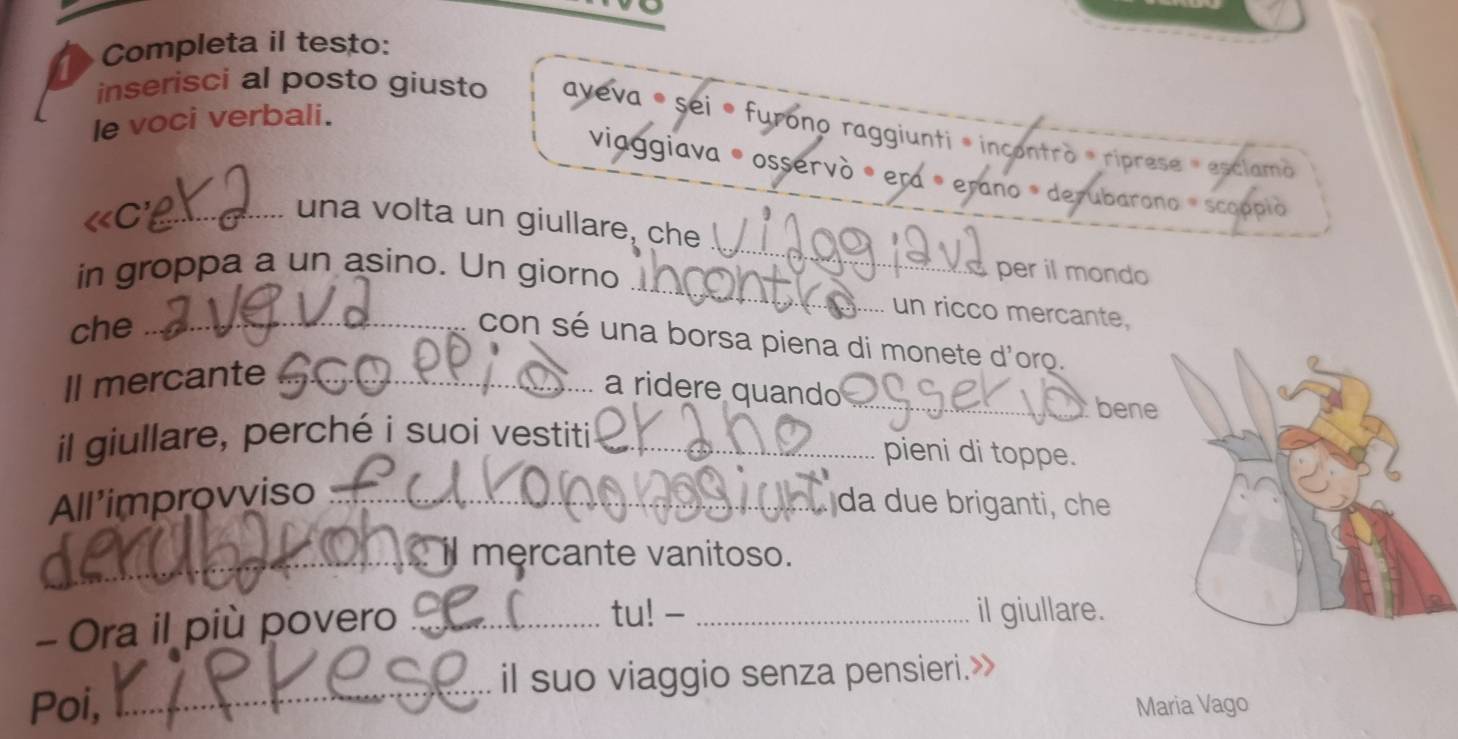 1 Completa il testo:
inserisci al posto giusto
le voci verbali.
aveva • sei • furono raggiunti • incontrò • riprese • esclamò
viaggiava • osservò • era • erano • derubarono • scoppiò
«C'era una volta un giullare, che viaggiava per il mondo
in groppa a un asino. Un giorno incontrò un ricco mercante,
che aveva con sé una borsa piena di monete d'oro.
Il mercante scoppiò a ridere quando osservò bene
il giullare, perché i suoi vestiti erano pieni di toppe.
All'improvviso furono raggiunti da due briganti, che
derubarono il mercante vanitoso.
– Ora il più povero sei tu! – il giullare.
Poi, riprese il suo viaggio senza pensieri.»
Maria Vago